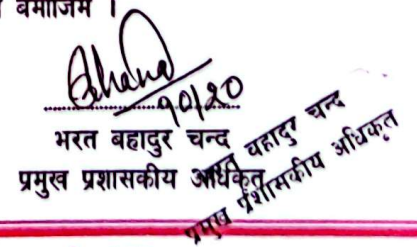 बमोजिम ।
१०।२०
भरत बहादुर चन्द
प्रमुख प्रशासकीय अधिकृत
भरत बहादुर चन्द
प्रमुख प्रशासकीय अधिकृत